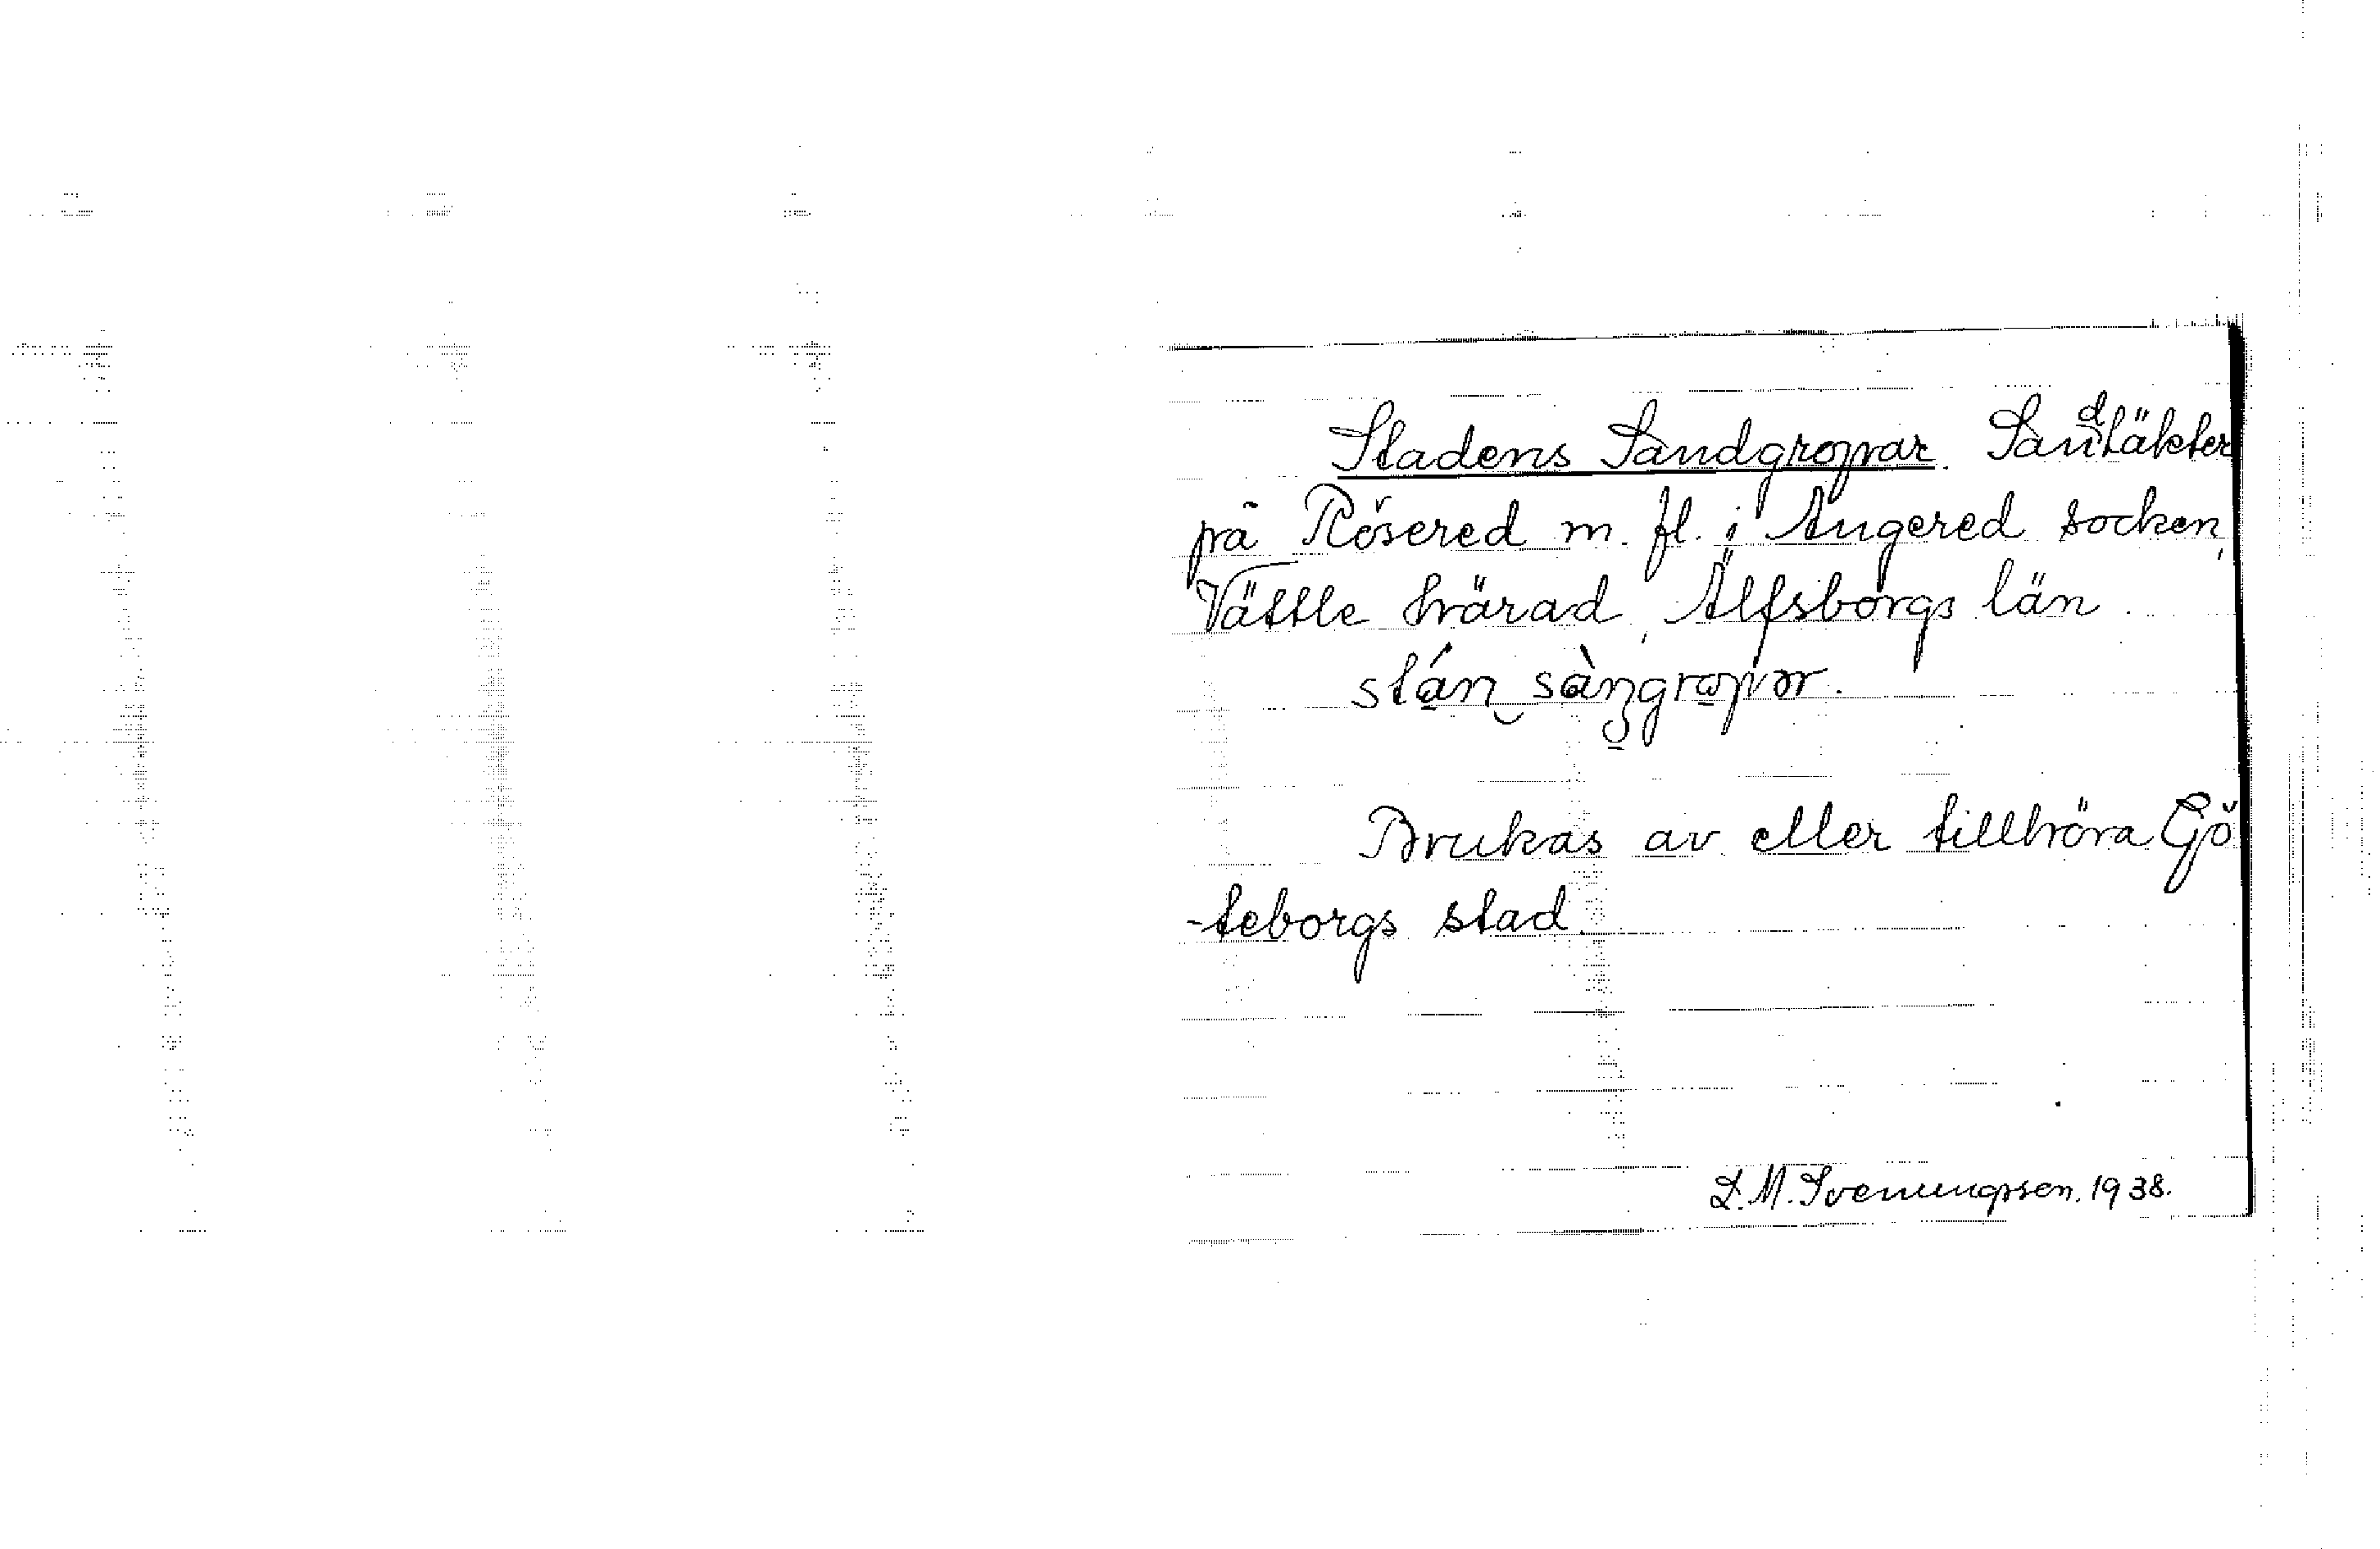 Stadens Sandgropar. Sandtäkter
på Rösered m. fl. i Angered socken,
Vättle härad, Älfsborgs län.
stán sàngropar.
Brukas av eller tillhöra Gö
-teborgs stad.
L. M. Svenungsson. 1938.